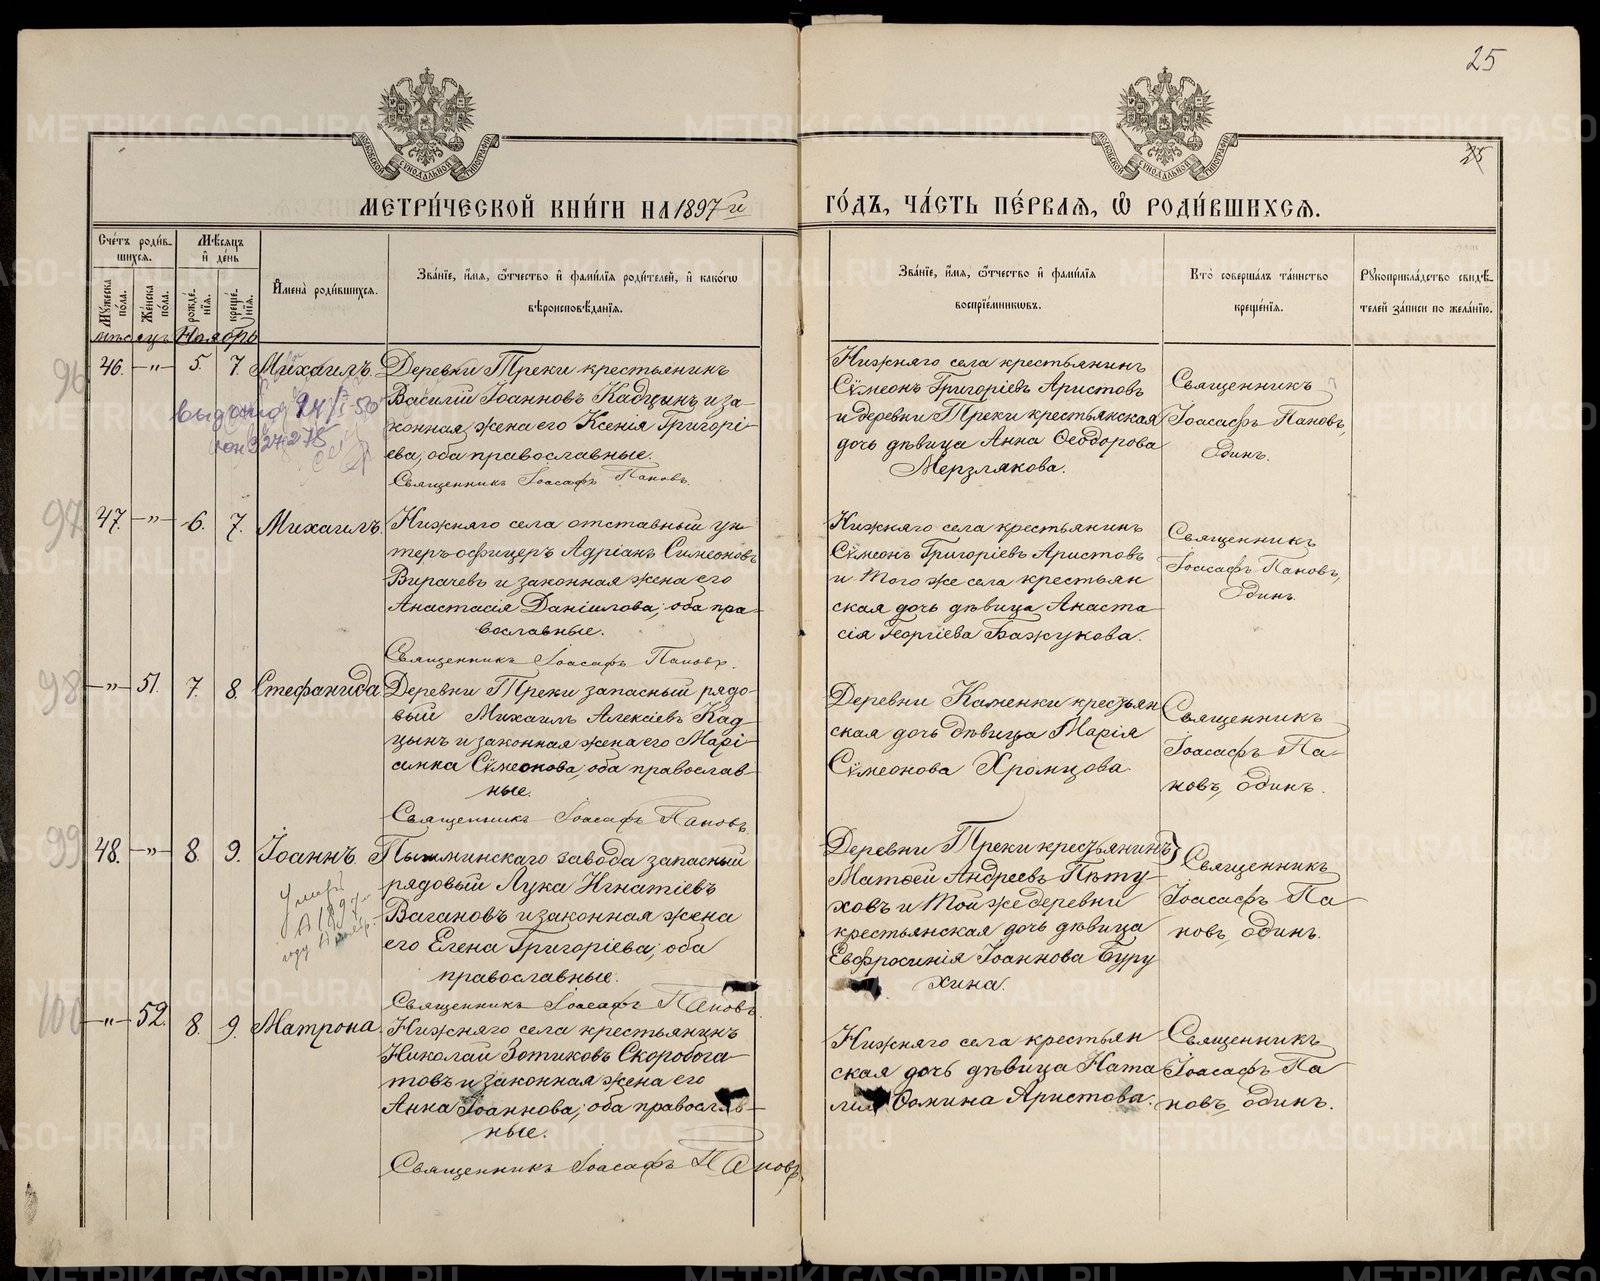 25
25
МЕТРИ́ЧЕСКОЙ КНИ́ГИ НА 1897й
ГО́ДЪ, ЧА́СТЬ ПЕ́РВАЯ, Ѿ РОДИ́ВШИХСЯ.
Сче́тъ роди́в-
шихся.
Му́жеска по́ла.
Же́нска по́ла.
Мѣ́сяцъ
и҆ де́нь
рожде́-
нїя.
креще́-
нїя.
И҆мена̀ роди́вшихся.
Зва́нїе, и҆́мя, ѻ҆́тчество и҆ фами́лїя роди́телей, и҆ како́гѡ
вѣроисповѣ́данїя.
Зва́нїе, и҆́мя, ѻ҆́тчество и҆ фами́лїя
воспрїе́мникѡвъ.
Кто̀ соверша́лъ та́инство
креще́нїя.
Рꙋкоприкла́дство свидѣ́-
телей за́писи по жела́нїю.
мѣсяцъ Ноябрь
96
46. — " — 5. 7. Михаилъ.
Деревни Треки крестьянинъ
Василій Іоанновъ Кадцынъ и за-
конная жена его Ксенія Григорі-
ева, оба православные.
Священникъ Іоасафъ Пановъ.
Нижняго села крестьянинъ
Сѵмеонъ Григоріевъ Аристовъ
и деревни Треки крестьянская
дочь дѣвица Анна Ѳеодорова
Мерзлякова.
Священникъ
Іоасафъ Пановъ,
Единъ.
97
47. — " — 6. 7. Михаилъ.
Нижняго села отставный ун-
теръ-офицеръ Адріанъ Симеоновъ
Вирачевъ и законная жена его
Анастасія Даніилова; оба пра-
вославные.
Священникъ Іоасафъ Пановъ.
Нижняго села крестьянинъ
Сѵмеонъ Григоріевъ Аристовъ
и того же села крестьян
ская дочь дѣвица Анаста-
сія Георгіева Бажукова.
Священникъ
Іоасафъ Пановъ,
Единъ.
98
— " — 51. 7. 8. Стефанида.
Деревни Треки запасный рядо-
вый Михаилъ Алексіевъ Кад-
цынъ и законная жена его Марі-
анна Сѵмеонова; оба православ-
ные.
Священникъ Іоасафъ Пановъ.
Деревни Каменки крестьян
ская дочь дѣвица Марія
Сѵмеонова Хромцова.
Священникъ
Іоасафъ Па-
новъ, единъ.
99
48. — " — 8. 9. Іоаннъ.
Умеръ
Пышминскаго завода запасный
рядовый Лука Игнатіевъ
Вагановъ и законная жена
его Елена Григоріева; оба
православные.
Священникъ Іоасафъ Пановъ.
Деревни Треки крестьянинъ
Матѳей Андреевъ Пѣту-
ховъ и той же деревни
крестьянская дочь дѣвица
Евфросинія Іоаннова Буру
хина.
Священникъ
Іоасафъ Па
новъ, единъ.
100
— " — 52. 8. 9. Матрона.
Нижняго села крестьянинъ
Николай Зотиковъ Скоробога-
товъ и законная жена его
Анна Іоаннова; оба православ-
ные.
Священникъ Іоасафъ Пановъ.
Нижняго села крестьян
ская дочь дѣвица Ната
лия Ѳомина Аристова.
Священникъ
Іоасафъ Па
новъ, единъ.